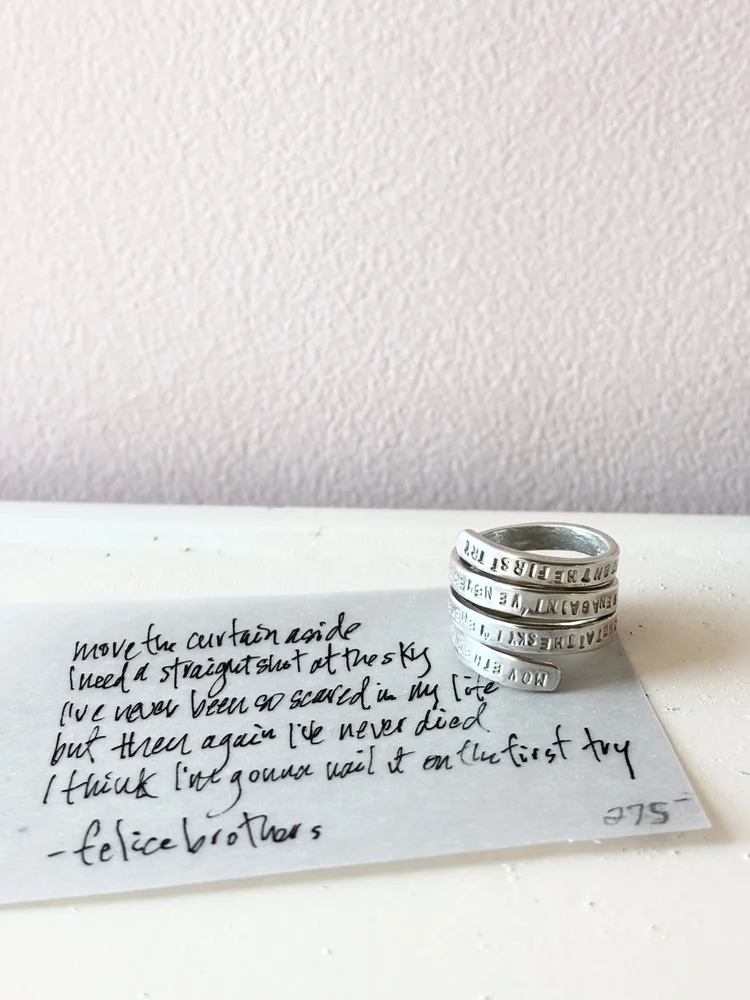 TONTHEFIRST TRY
ENAGAIN I'VE NEVER
SHOTATTHESKYI'VENE
MOVETHE
move the curtain aside
I need a straight shot at the sky
I've never been so scared in my life
but then again I've never died
I think I'm gonna nail it on the first try
- felice brothers
275-